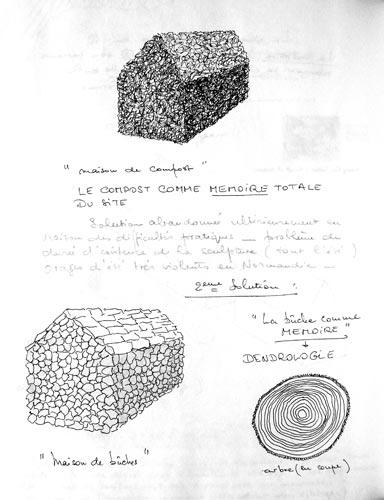 " maison de compost "
LE COMPOST COMME MEMOIRE TOTALE
DU SITE
Solution abandonnée ultérieurement en
raison des difficultés pratiques _ problème de
durée d'existence de la sculpture ( tout l'été )
orages d'été très violents en Normandie _
2eme Solution :
" La bûche comme
MEMOIRE "
DENDROLOGIE
" Maison de bûches "
arbre (en coupe)